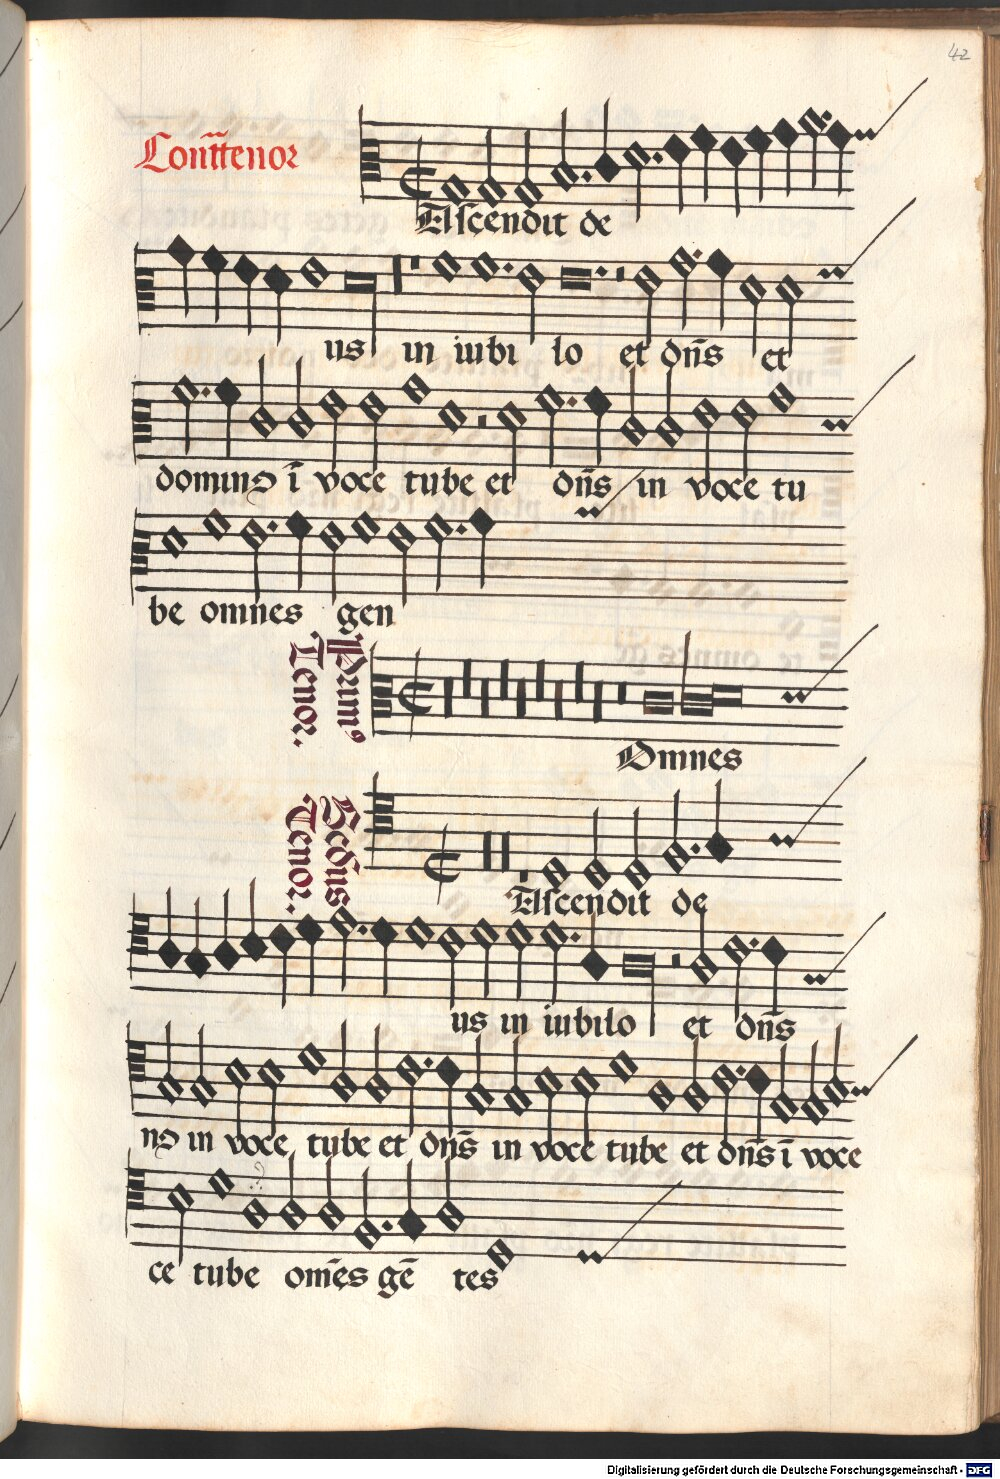 42
Contͬatenor
Ascendit de
us in iubi lo et dn̄s et
domino ī voce tube et dn̄s in voce tu
be omnes gen
Primꝰ
Tenor.
Omnes
Scdus
Tenor.
Ascendit de
us in iubilo et dn̄s
no in voce tube et dn̄s in voce tube et dn̄s ī voce
ce tube om̄es gē tes
Digitalisierung gefördert durch die Deutsche Forschungsgemeinschaft - DFG